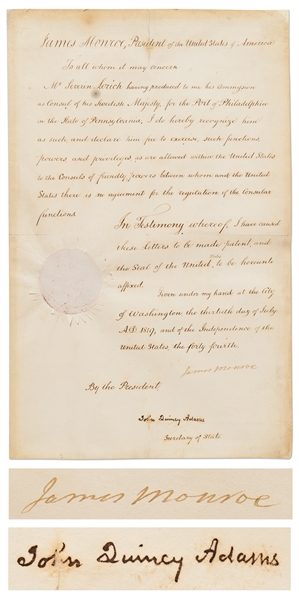 James Monroe, President of the United States of America
To all whom it may concern
Mr. Severin Lorich having produced to me his Commission
as Consul of his Swedish Majesty, for the Port of Philadelphia
in the State of Pennsylvania, I do hereby recognize him
as such and declare him free to exercise such functions,
powers and privileges, as are allowed within the United States
to the Consuls of friendly powers between whom and the United
States there is no agreement for the regulation of the Consular
functions.
In Testimony whereof, I have caused
these Letters to be made patent, and
the Seal of the United States to be hereunto
affixed.
Given under my hand at the City
of Washington the thirtieth day of July
AD. 1819, and of the Independence of the
United States, the forty fourth.
James Monroe
By the President,
John Quincy Adams
Secretary of State
James Monroe
John Quincy Adams